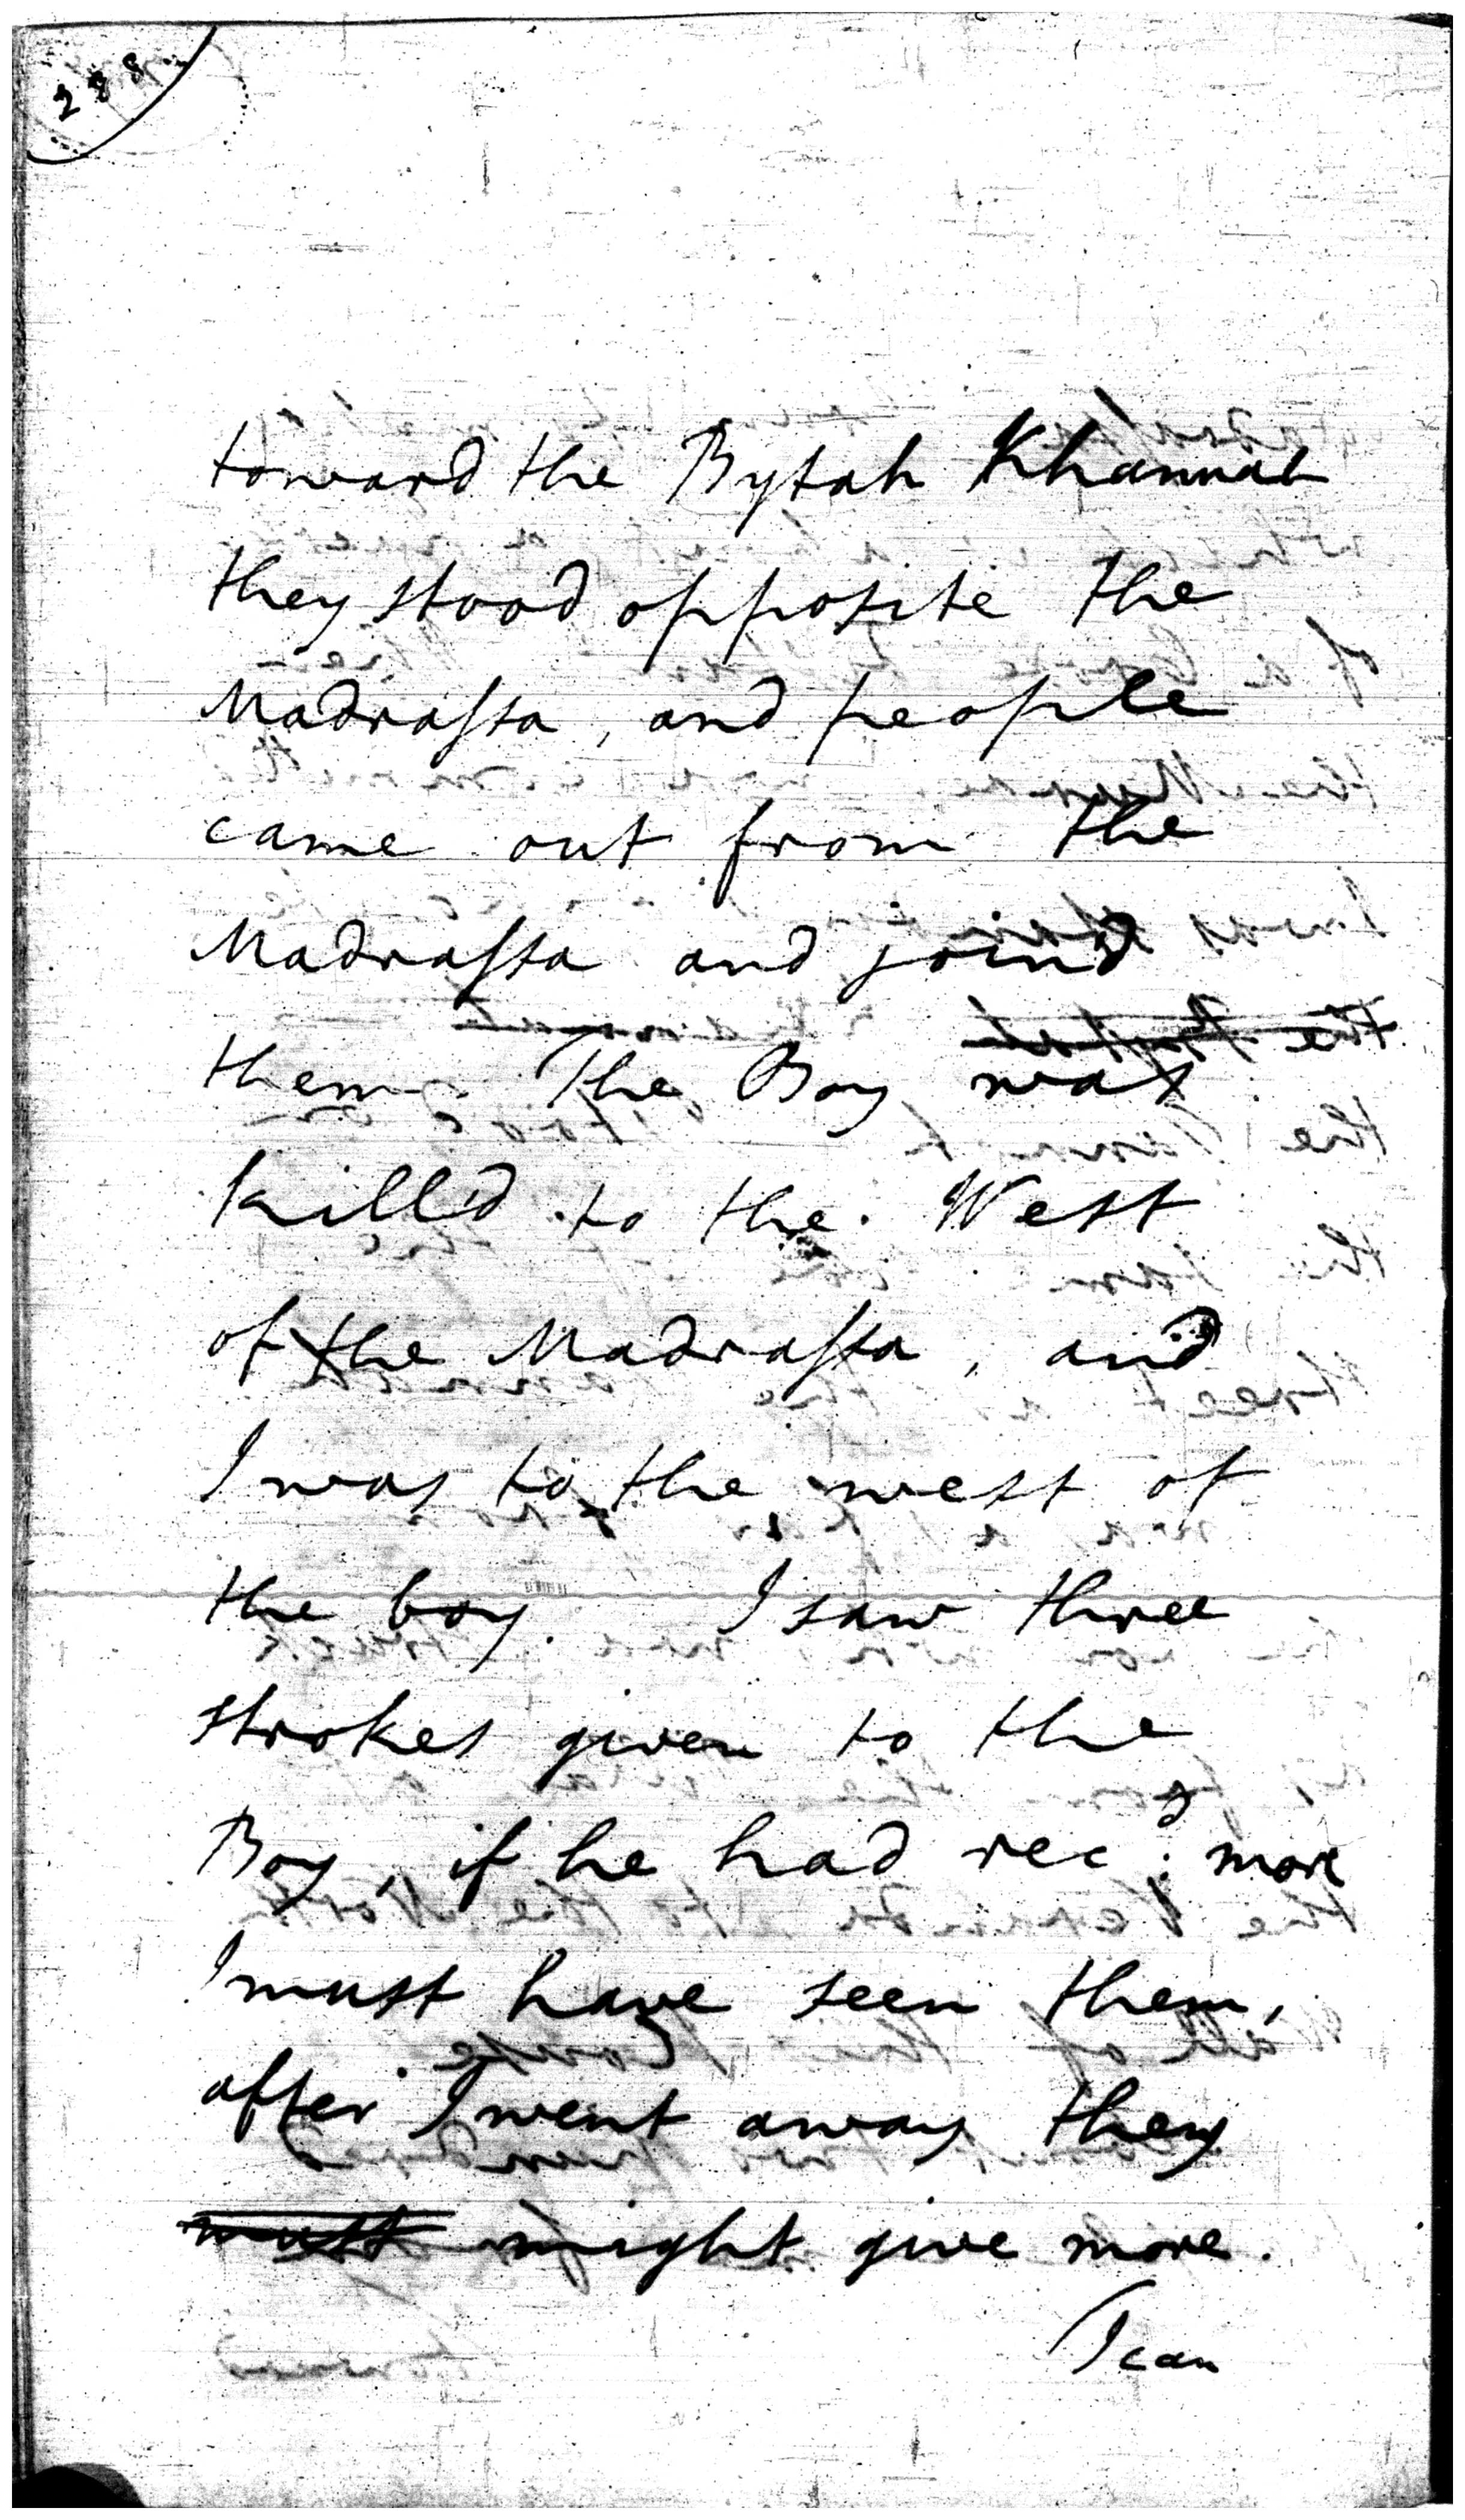 288
toward the Bytah Khannah
they stood opposite the
Madrassa, and people
came out from the
Madrassa and joind
them. The Boy was
kill'd to the West
of the Madrassa, and
I was to the west of
the boy. I saw three
strokes given to the
Boy, if he had rec:d more
I must have seen them,
after I went away they
must might give more.
I can